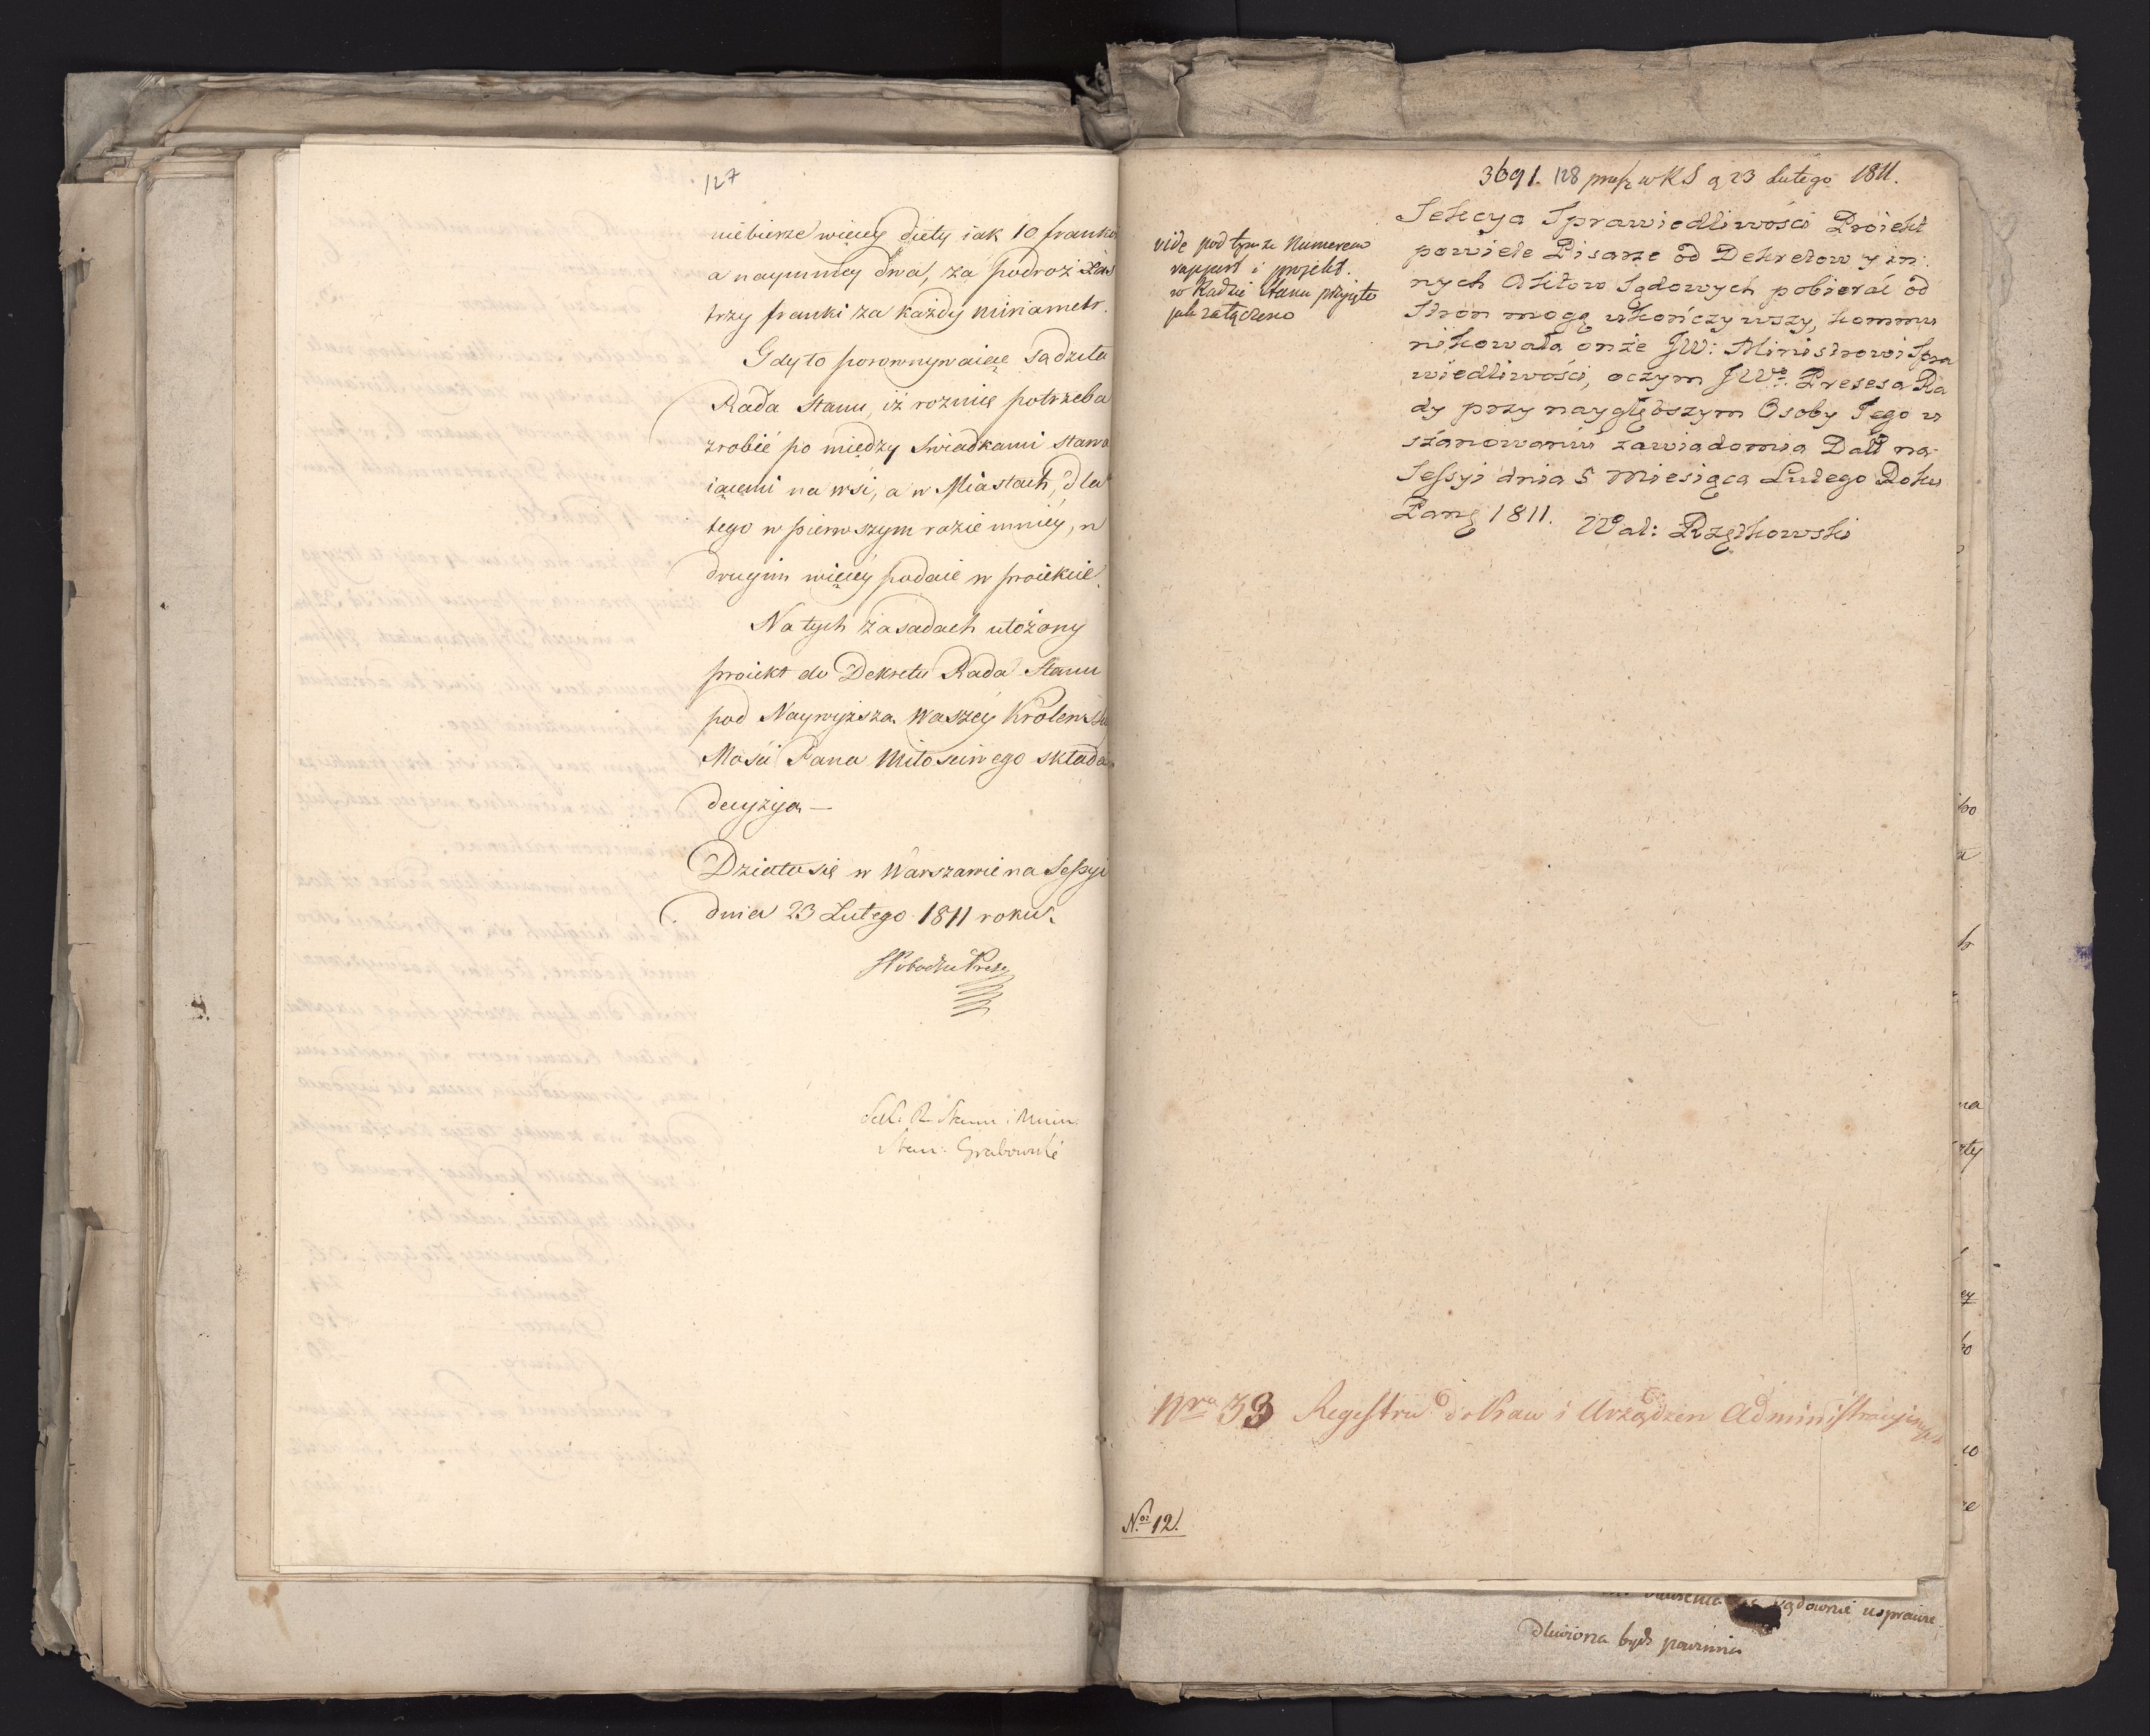 127
niebierze więcey diety iak 10 franko
a naymniey dwa, za podroż zas
trzy franki za każdy miriametr.
Gdy to porownywaiąc sądziła
Rada Stanu, iż roznicę potrzeba
zrobić po między Swiadkami stawa
iącemi na wsi, a w Miastach, dla
tego w pierwszym razie mniey, w
drugim więcey podaie w proiekcie.
Na tych zasadach ułożony
proiekt do Dekretu Rada Stanu
pod Naywyższą Waszey Krolewskiey
Mości Pana Miłosciwego składa
decyzyą —
Działo się w Warszawie na Sessyi
dnia 23 Lutego 1811 roku.
Prezes
Sekr: R. Stanu i Minis:
Stan: Grabowski
3691. 128 w RS 23 Lutego 1811.
vide pod tymże Numerem
rapport i projekt.
w Radzie Stanu przyięte
jak załączono
Sekcya Sprawiedliwości Proiekt
powiele Pisarze od Dekretow y in:
nych Aktow Sądowych pobierać od
Stron mogą ukończywszy, kommu
nikowała onże JW: Ministrowi Spra
wiedliwości, oczym JWo. Prezesa Ra
dy przy naygłębszym Osoby Jego u
szanowaniu zawiadomia Datt na
Sessyi dnia 5 Miesiąca Lutego Roku
Pang 1811.
Wal: Rzętkowski
Nro 33 Regestru do Praw i Urządzen Administracyinych
No. 12.
sądownie usprawie
dliwiona bydź powinna